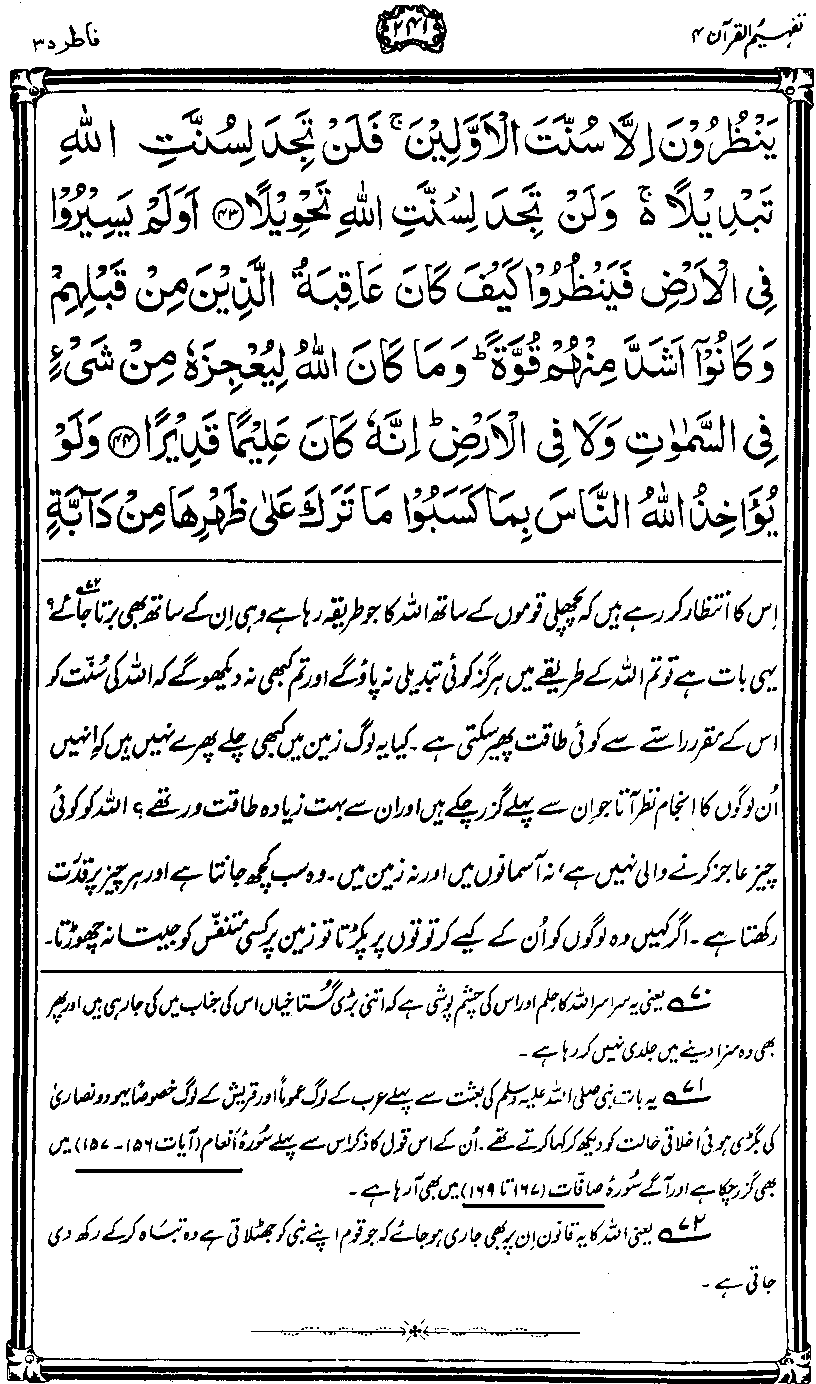 تفہیم القرآن ۴
۲۴۱
فاطر ۳۵
يَنْظُرُوْنَ اِلَّا سُنَّتَ الْاَوَّلِيْنَ ۚ فَلَنْ تَجِدَ لِسُنَّتِ اللّٰهِ
تَبْدِيْلًا ۚ۬ وَلَنْ تَجِدَ لِسُنَّتِ اللّٰهِ تَحْوِيْلًا ۴۳ اَوَلَمْ يَسِيْرُوْا
فِى الْاَرْضِ فَيَنْظُرُوْا كَيْفَ كَانَ عَاقِبَةُ الَّذِيْنَ مِنْ قَبْلِهِمْ
وَكَانُوْٓا اَشَدَّ مِنْهُمْ قُوَّةً ؕ وَمَا كَانَ اللّٰهُ لِيُعْجِزَهٗ مِنْ شَىْءٍ
فِى السَّمٰوٰتِ وَلَا فِى الْاَرْضِ ؕ اِنَّهٗ كَانَ عَلِيْمًا قَدِيْرًا ۴۴ وَلَوْ
يُؤَاخِذُ اللّٰهُ النَّاسَ بِمَا كَسَبُوْا مَا تَرَكَ عَلٰى ظَهْرِهَا مِنْ دَآبَّةٍ
اِس کا انتظار کر رہے ہیں کہ پچھلی قوموں کے ساتھ اللہ کا جو طریقہ رہا ہے وہی اِن کے ساتھ بھی برتا جائے۷۲؟
یہی بات ہے تو تم اللہ کے طریقے میں ہرگز کوئی تبدیلی نہ پاؤ گے اور تم کبھی نہ دیکھو گے کہ اللہ کی سُنّت کو
اس کے مقرر راستے سے کوئی طاقت پھیر سکتی ہے۔ کیا یہ لوگ زمین میں کبھی چلے پھرے نہیں ہیں کہ اِنہیں
اُن لوگوں کا انجام نظر آتا جو اِن سے پہلے گزر چکے ہیں اور ان سے بہت زیادہ طاقت ور تھے؟ اللہ کو کوئی
چیز عاجز کرنے والی نہیں ہے، نہ آسمانوں میں اور نہ زمین میں۔ وہ سب کچھ جانتا ہے اور ہر چیز پر قدرت
رکھتا ہے۔ اگر کہیں وہ لوگوں کو اُن کے کیے کرتوتوں پر پکڑتا تو زمین پر کسی متنفّس کو جیتا نہ چھوڑتا۔
۷۰ یعنی یہ سراسر اللہ کا حِلم اور اس کی چشم پوشی ہے کہ اتنی بڑی گستاخیاں اس کی جناب میں کی جا رہی ہیں اور پھر
بھی وہ سزا دینے میں جلدی نہیں کر رہا ہے۔
۷۱ یہ بات نبی صلی اللہ علیہ وسلم کی بعثت سے پہلے عرب کے لوگ عموماً اور قریش کے لوگ خصوصاً یہود و نصاریٰ
کی بگڑی ہوئی اخلاقی حالت کو دیکھ کر کہا کرتے تھے۔ اُن کے اس قول کا ذکر اس سے پہلے سُورۂ اَنعام (آیات ۱۵۶-۱۵۷) میں
بھی گزر چکا ہے اور آگے سُورۂ صافّات (۱۶۷ تا ۱۶۹) میں بھی آ رہا ہے۔
۷۲ یعنی اللہ کا یہ قانون اِن پر بھی جاری ہو جائے کہ جو قوم اپنے نبی کو جھٹلاتی ہے وہ تباہ کر کے رکھ دی
جاتی ہے۔